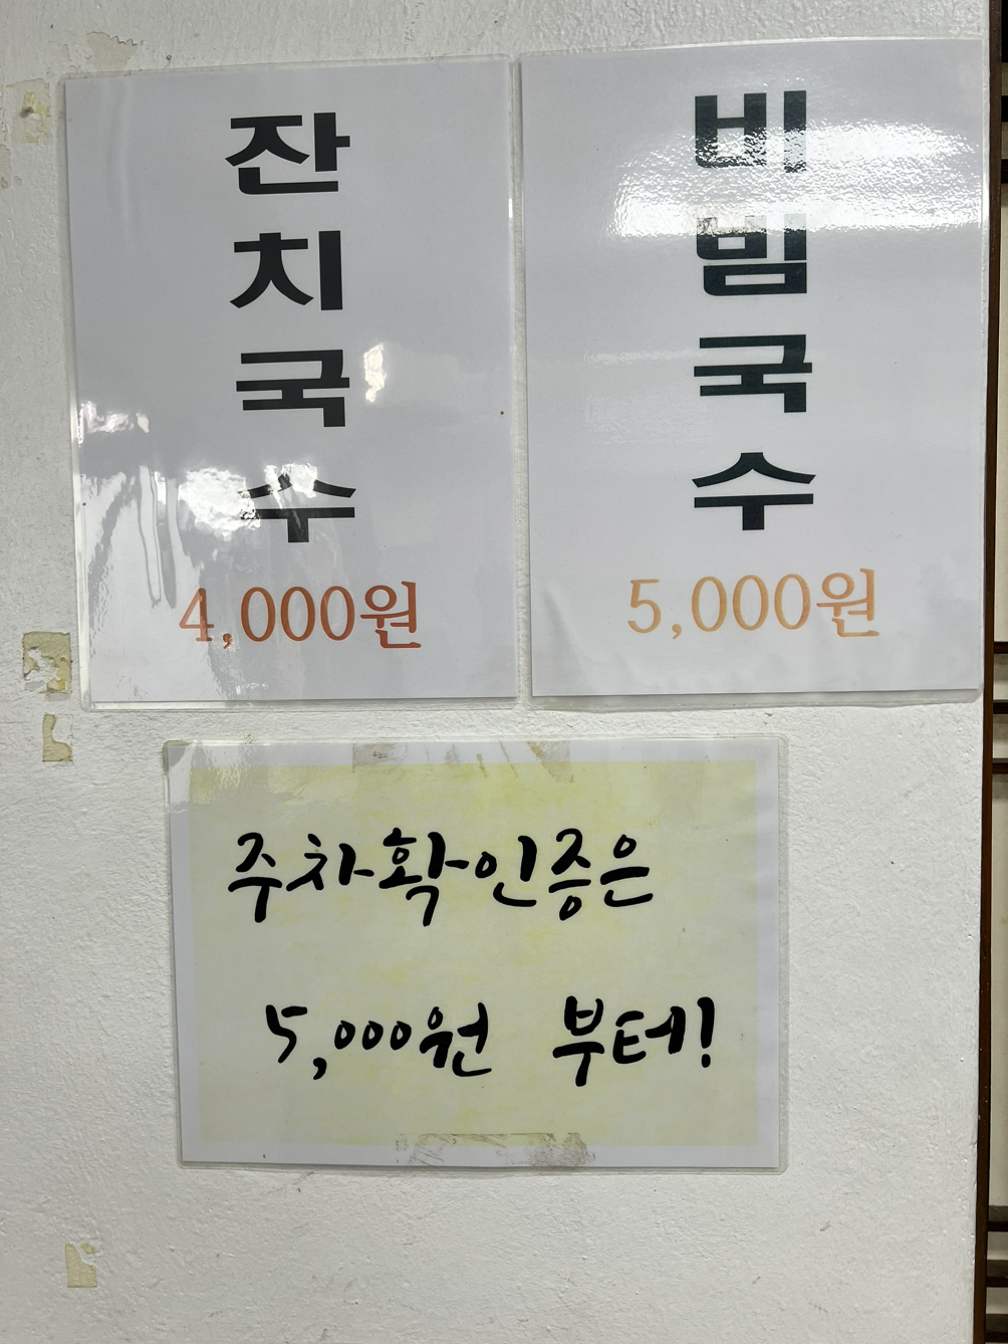 잔치국수
4,000원
비빔국수
5,000원
주차확인증은
5,000원 부터!